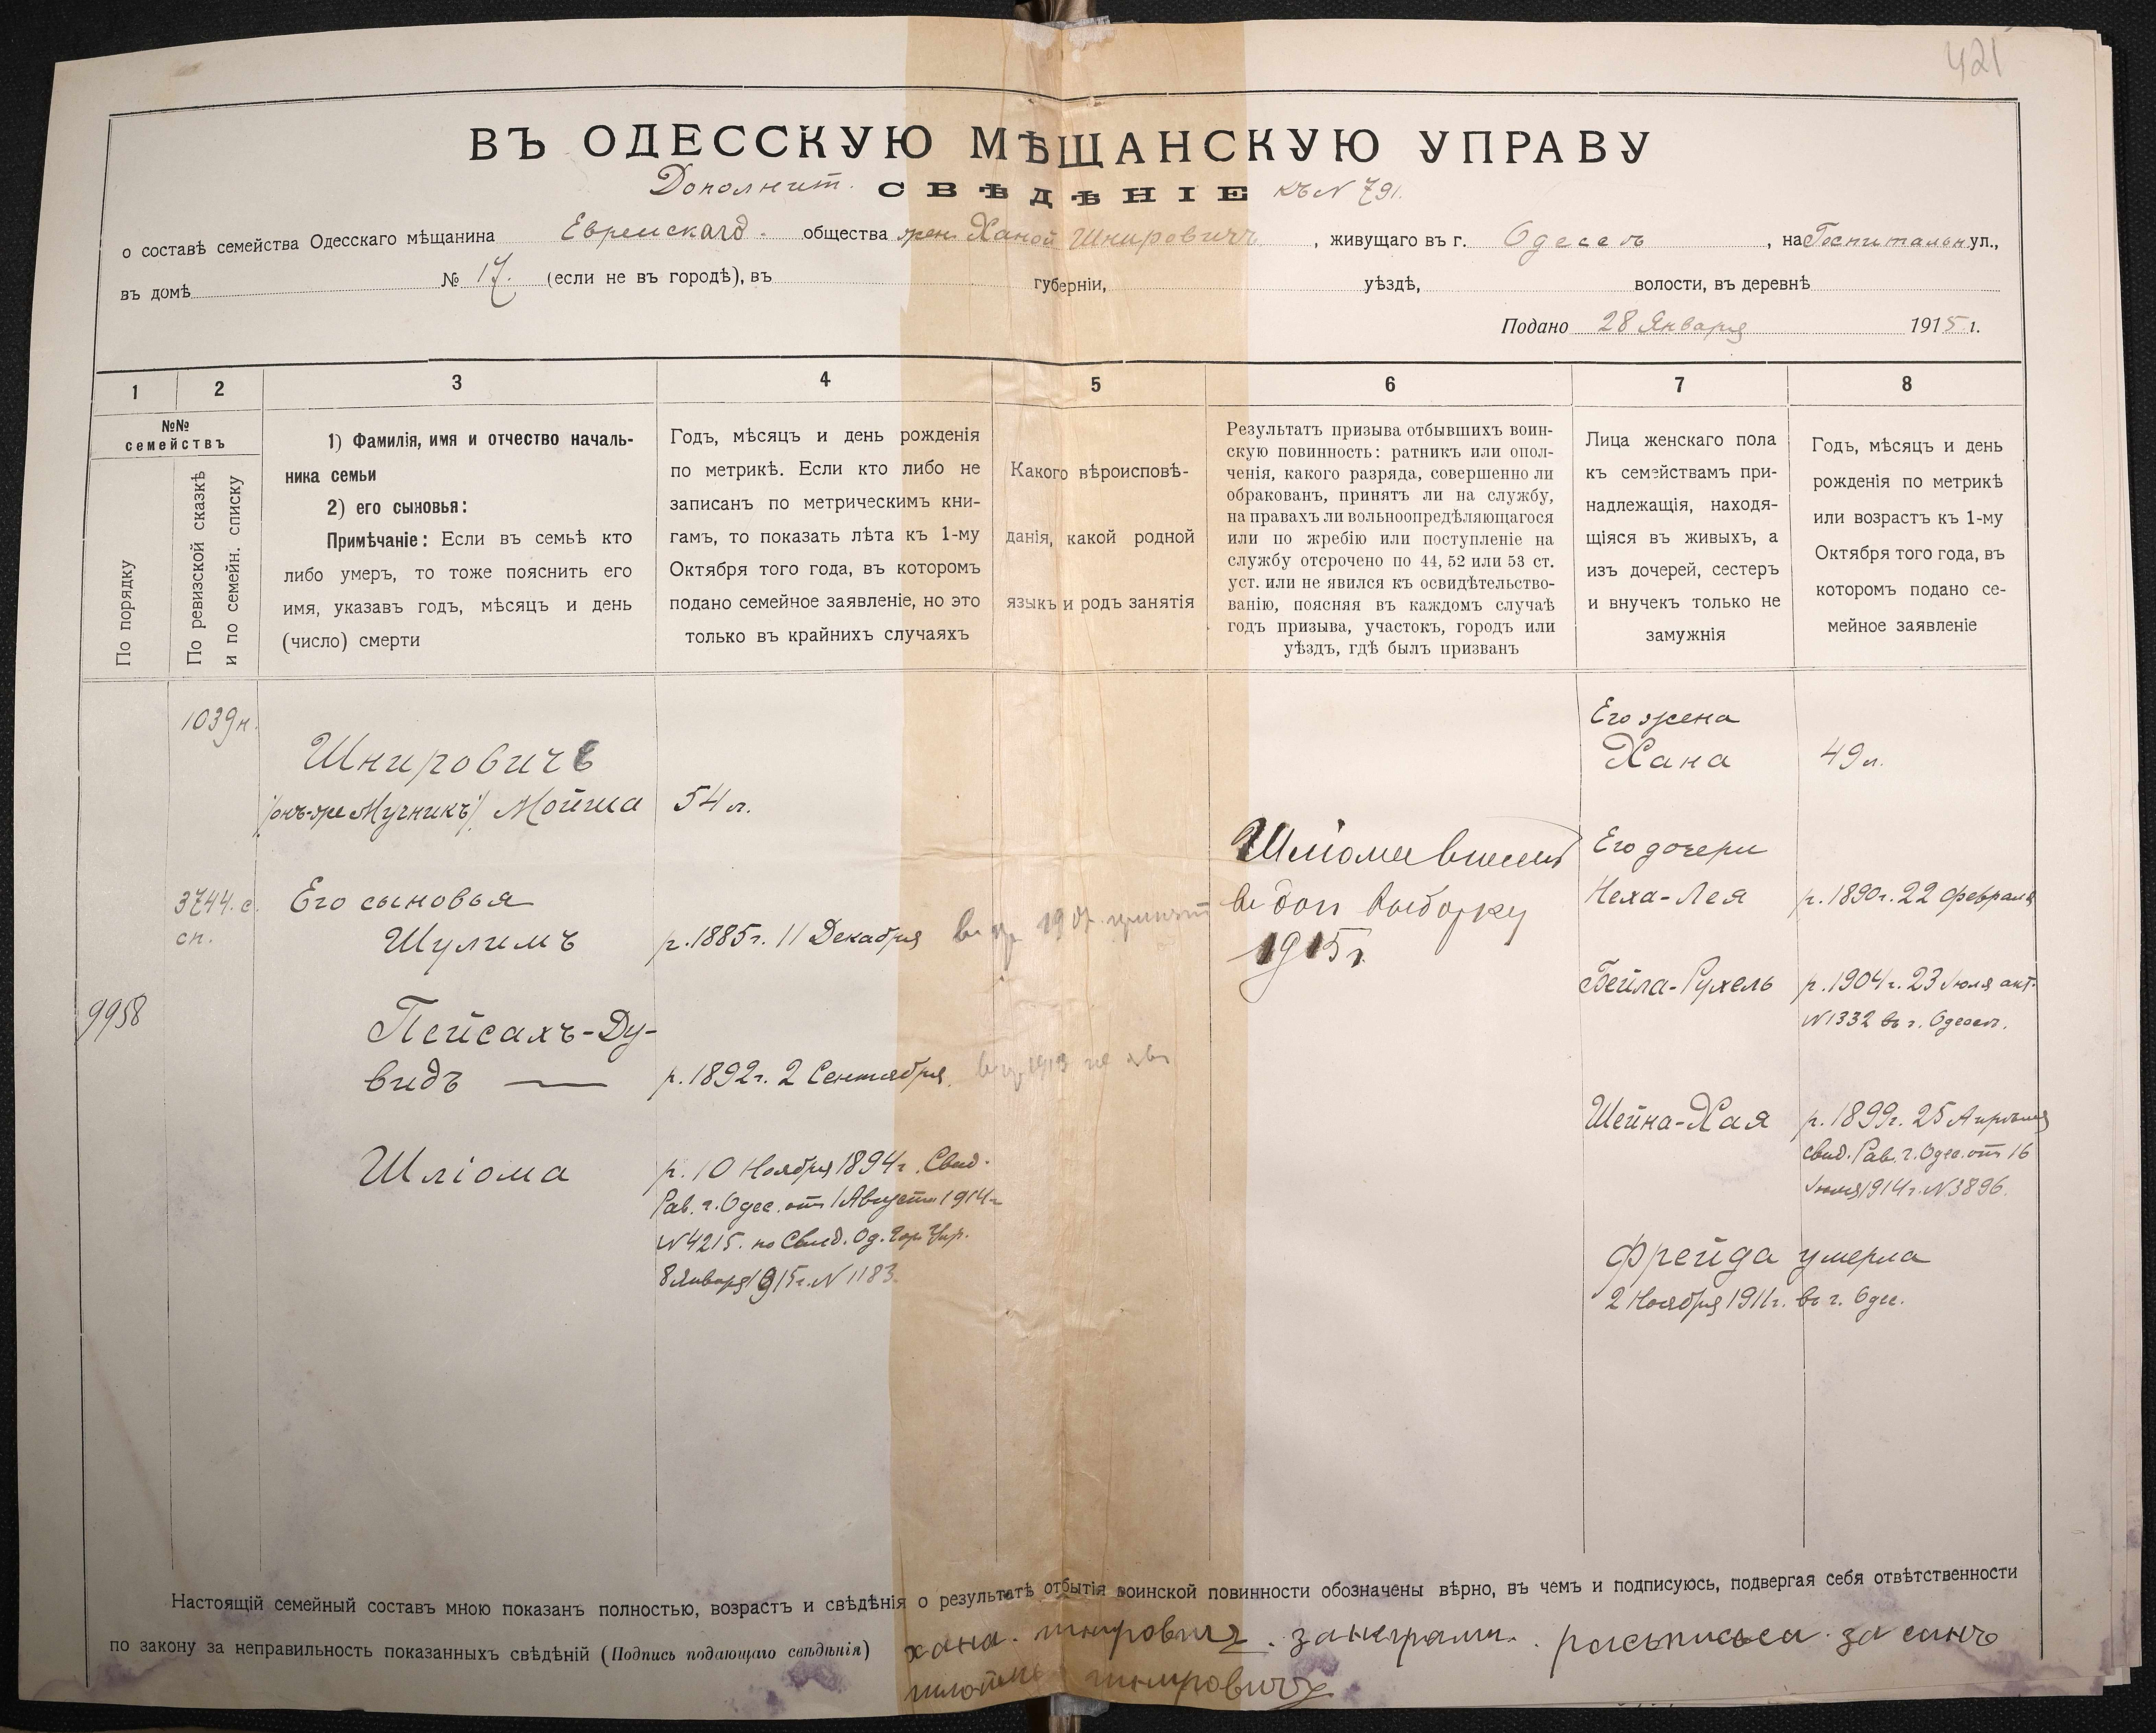 421
ВЪ ОДЕССКУЮ МѢЩАНСКУЮ УПРАВУ
Дополнит. СВѢДѢНІЕ къ N 791.
о составѣ семейства Одесскаго мѣщанина Еврейскаго общества жен. Ханой Шнировичъ, живущаго въ г. Одессѣ, на Госпитальн. ул.,
въ домѣ № 17. (если не въ городѣ), въ губерніи, уѣздѣ, волости, въ деревнѣ
Подано 28 Января 1915 г.
1 2 3 4 5 6 7 8
№№ семействъ
По порядку
По ревизской сказкѣ
и по семейн. списку
1) Фамилія, имя и отчество началь-
ника семьи
2) его сыновья:
Примѣчаніе: Если въ семьѣ кто
либо умеръ, то тоже пояснить его
имя, указавъ годъ, мѣсяцъ и день
(число) смерти
Годъ, мѣсяцъ и день рожденія
по метрикѣ. Если кто либо не
записанъ по метрическимъ кни-
гамъ, то показать лѣта къ 1-му
Октября того года, въ которомъ
подано семейное заявленіе, но это
только въ крайнихъ случаяхъ
Какого вѣроисповѣ-
данія, какой родной
языкъ и родъ занятія
Результатъ призыва отбывшихъ воин-
скую повинность: ратникъ или опол-
ченія, какого разряда, совершенно ли
обракованъ, принятъ ли на службу,
на правахъ ли вольноопредѣляющагося
или по жребію или поступленіе на
службу отсрочено по 44, 52 или 53 ст.
уст. или не явился къ освидѣтельство-
ванію, поясняя въ каждомъ случаѣ
годъ призыва, участокъ, городъ или
уѣздъ, гдѣ былъ призванъ
Лица женскаго пола
къ семействамъ при-
надлежащія, находя-
щіяся въ живыхъ, а
изъ дочерей, сестеръ
и внучекъ только не
замужнія
Годъ, мѣсяцъ и день
рожденія по метрикѣ
или возрастъ къ 1-му
Октября того года, въ
которомъ подано се-
мейное заявленіе
1039 н.
Шнировичъ
/онъ-же Мучникъ/ Мойша 54 л.
Его жена
Хана 49 л.
3744. с.
сп.
Его сыновья
Шулимъ р. 1885 г. 11 Декабря 1907 принят
Шліома внесенъ
въ доп выборку
1915 г.
Его дочери
Неха-Лея р. 1890 г. 22 февраля
9958
Пейсахъ-Ду-
видъ — р. 1892 г. 2 Сентября. 1913 не яв
Бейла-Рухель р. 1904 г. 23 Юля акт.
N 1332 въ г. Одессѣ.
Шліома р. 10 Ноября 1894 г. Свид.
Рав. г. Одес. от 1 Августа 1914 г
N 4215. по Свид. Од. Гор. Упр.
8 Января 1915 г. N 1183.
Шейна-Хая р. 1899 г. 25 Апрѣля
свид. Рав. г. Одес. от 16
Июля 1914 г. N 3896.
Фрейда умерла
2 Ноября 1911 г. въ г. Одес.
Настоящій семейный составъ мною показанъ полностью, возрастъ и свѣдѣнія о результатѣ отбытія воинской повинности обозначены вѣрно, въ чемъ и подписуюсь, подвергая себя отвѣтственности
по закону за неправильность показанныхъ свѣдѣній (Подпись подающаго свѣдѣнія) хана. шнировичъ. занеграмт. росписься за синъ
шнировичъ